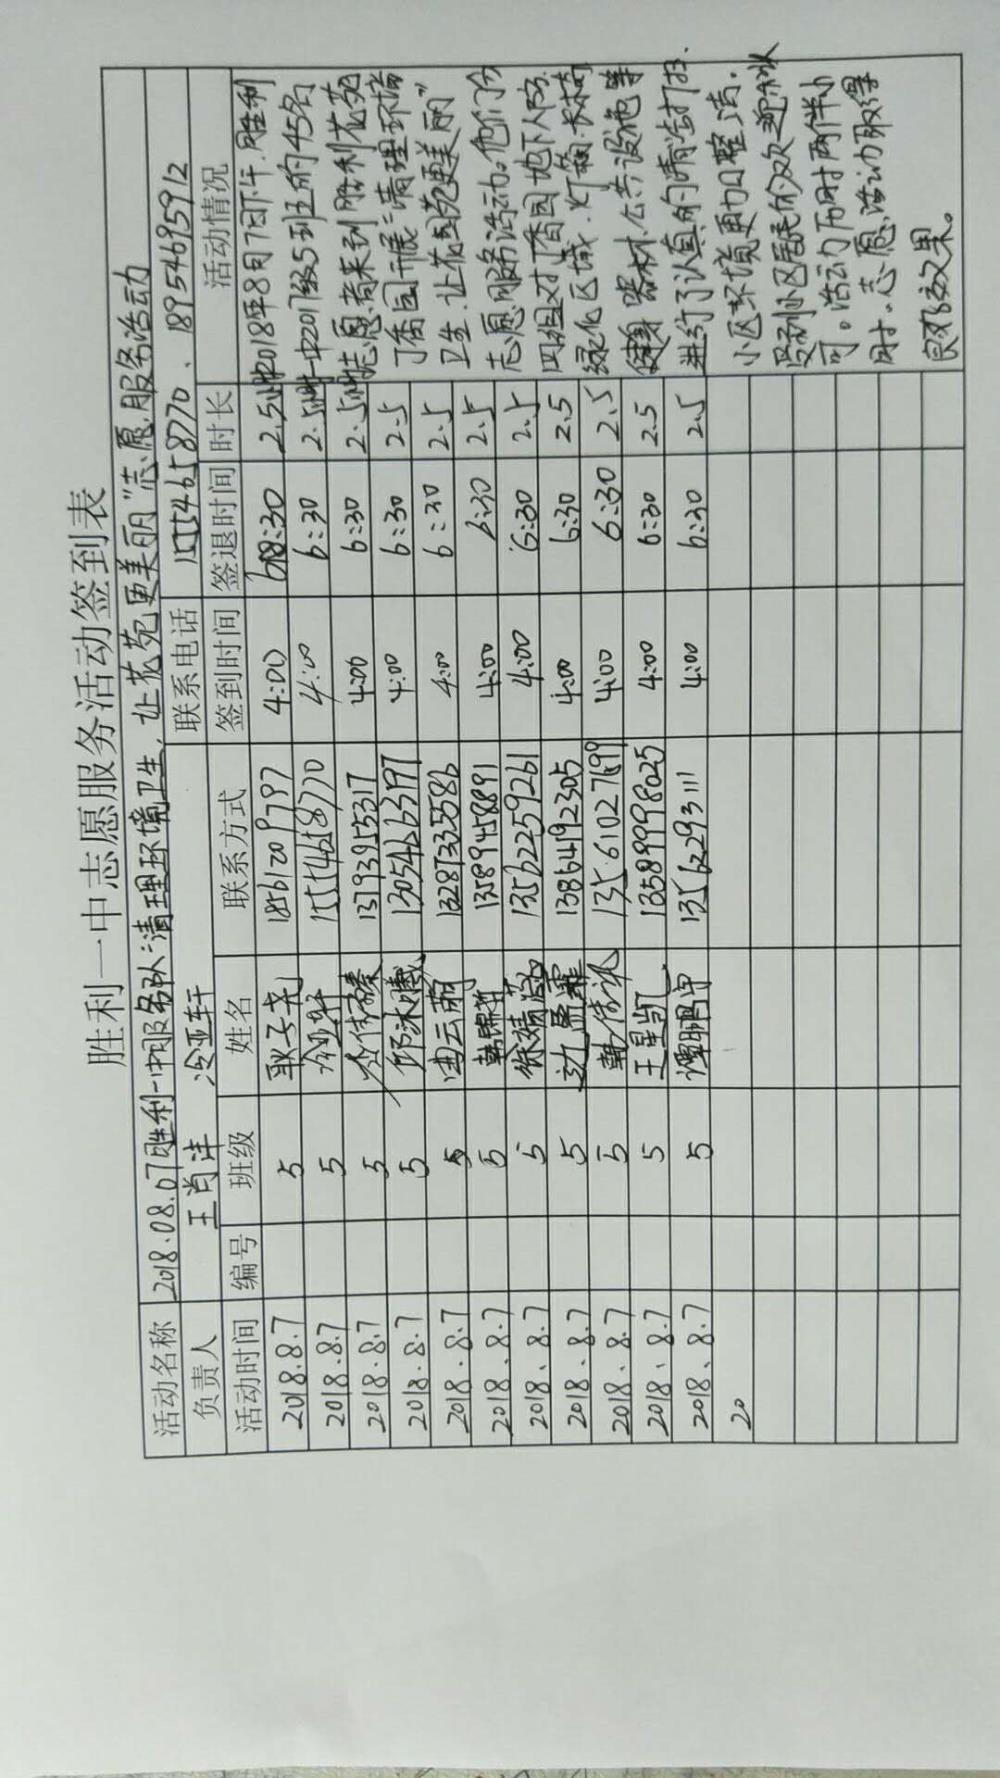 胜利一中志愿服务活动签到表
活动名称 2018.08.07胜利一中服务队"清理环境卫生,让花苑更美丽"志愿服务活动
负责人 王肖洋 冷亚轩 联系电话 15554658770、18954695912
活动时间 编号 班级 姓名 联系方式 签到时间 签退时间 时长 活动情况
2018.8.7 5 耿子尧 18561209797 4:00 6:30 2.5小时 2018年8月7日下午,胜利
2018.8.7 5 冷亚轩 15554658770 4:00 6:30 2.5小时 一中2017级5班的45名
2018.8.7 5 4:00 6:30 2.5小时 志愿者来到胜利花苑
2018.8.7 5 邱沐曦 13054263797 4:00 6:30 2.5 丁香园开展"清理环境
2018.8.7 5 曲云萌 13287335586 4:00 6:30 2.5 卫生,让花苑更美丽"
2018.8.7 5 韩锦 13589458891 4:00 6:30 2.5 志愿服务活动。他们分
2018.8.7 5 徐婧 13562259261 4:00 6:30 2.5 四组对丁香园地下人防、
2018.8.7 5 边孟霏 13864192305 4:00 6:30 2.5 绿化区域、灯箱、长椅
2018.8.7 5 韩 13561027699 4:00 6:30 2.5 健身器材、公共设施等
2018.8.7 5 王星凯 13589998025 4:00 6:30 2.5 进行了认真的清洁打扫.
2018.8.7 5 谭鹏 13562293111 4:00 6:30 2.5 小区环境更加整洁.
20 受到小区居民的欢迎和认
可。活动历时两个半小
时.志愿活动取得
良好效果。